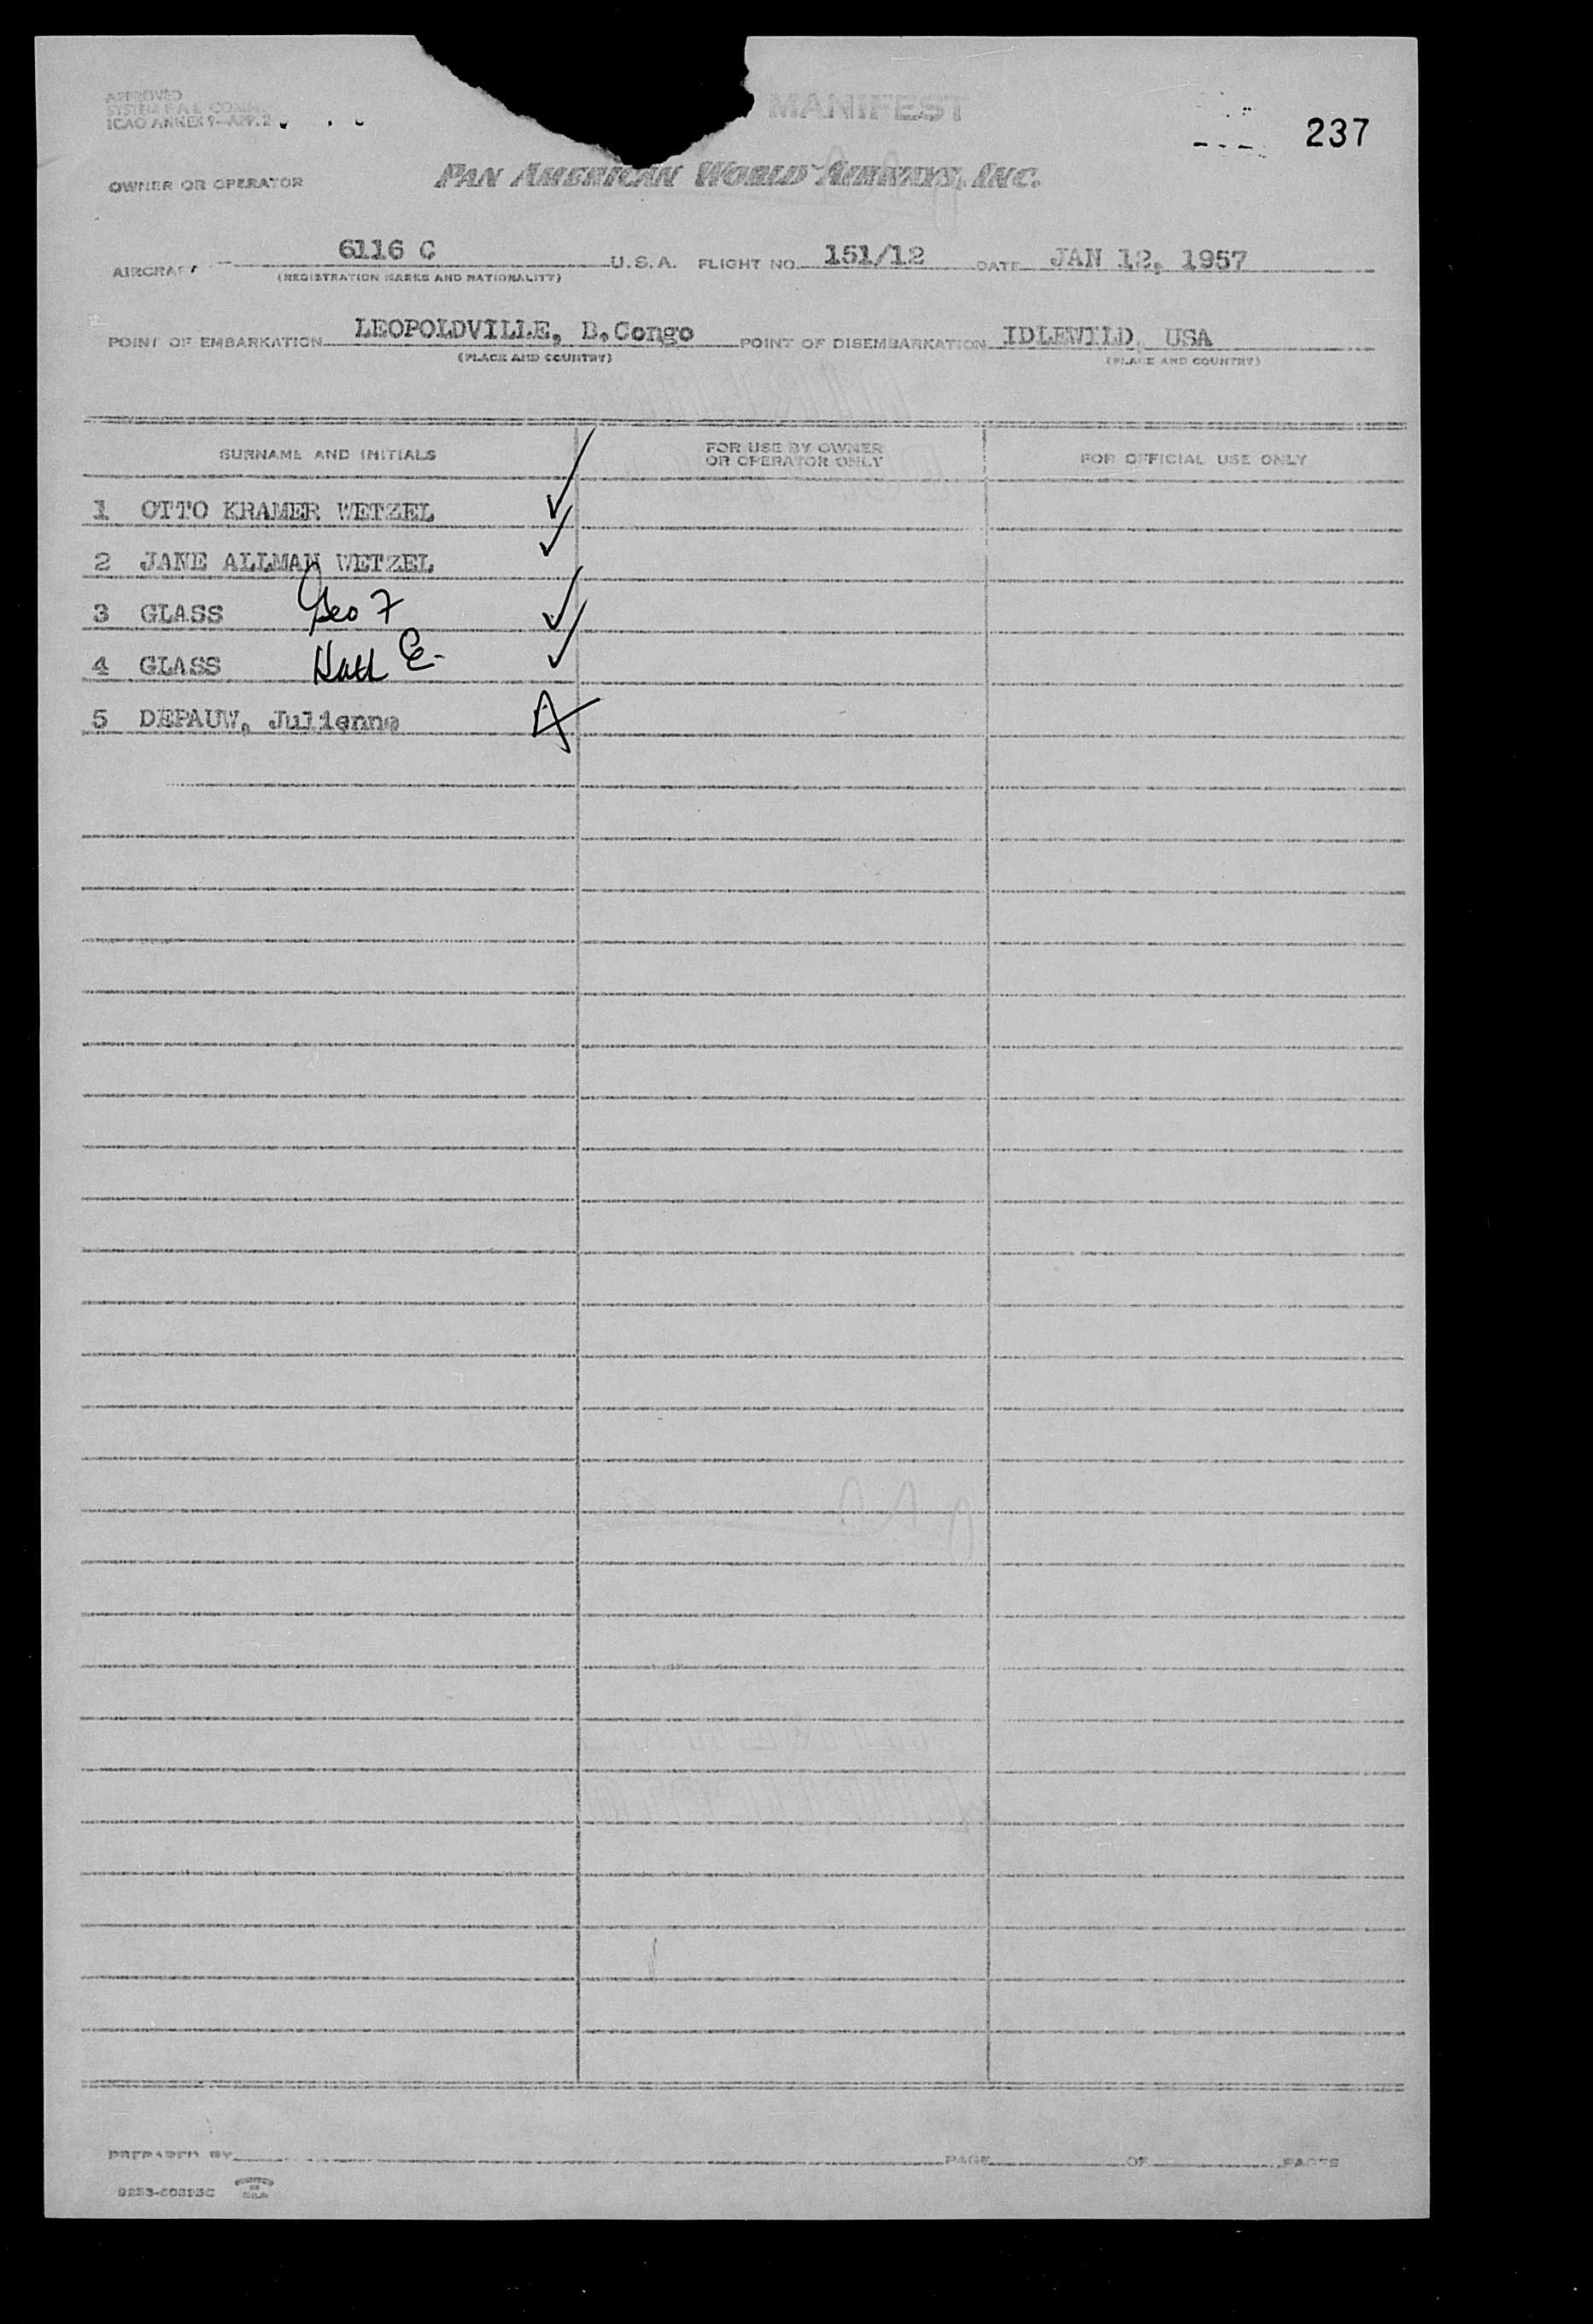 APPROVED
MANIFEST
SYSTEM F.A.L. COMM.
ICAO ANNEX 9—APP. 2
237
OWNER OR OPERATOR PAN AMERICAN WORLD AIRWAYS, INC.
AIRCRAFT 6116 C U.S.A. FLIGHT NO. 151/12 DATE JAN 12, 1957
(REGISTRATION MARKS AND NATIONALITY)
POINT OF EMBARKATION LEOPOLDVILLE, B.Congo POINT OF DISEMBARKATION IDLEWILD, USA
(PLACE AND COUNTRY) (PLACE AND COUNTRY)
SURNAME AND INITIALS FOR USE BY OWNER OR OPERATOR ONLY FOR OFFICIAL USE ONLY
1 OTTO KRAMER WETZEL ✓
2 JANE ALLMAN WETZEL ✓
3 GLASS Geo F ✓
4 GLASS E. ✓
5 DEPAUW, Julienne A
PREPARED BY PAGE OF PAGES